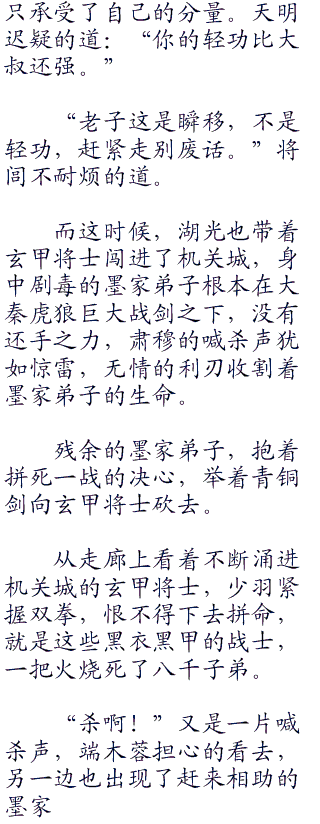 只承受了自己的分量。天明
迟疑的道：“你的轻功比大
叔还强。”
“老子这是瞬移，不是
轻功，赶紧走别废话。”将
闾不耐烦的道。
而这时候，湖光也带着
玄甲将士闯进了机关城，身
中剧毒的墨家弟子根本在大
秦虎狼巨大战剑之下，没有
还手之力，肃穆的喊杀声犹
如惊雷，无情的利刃收割着
墨家弟子的生命。
残余的墨家弟子，抱着
拼死一战的决心，举着青铜
剑向玄甲将士砍去。
从走廊上看着不断涌进
机关城的玄甲将士，少羽紧
握双拳，恨不得下去拼命，
就是这些黑衣黑甲的战士，
一把火烧死了八千子弟。
“杀啊！”又是一片喊
杀声，端木蓉担心的看去，
另一边也出现了赶来相助的
墨家